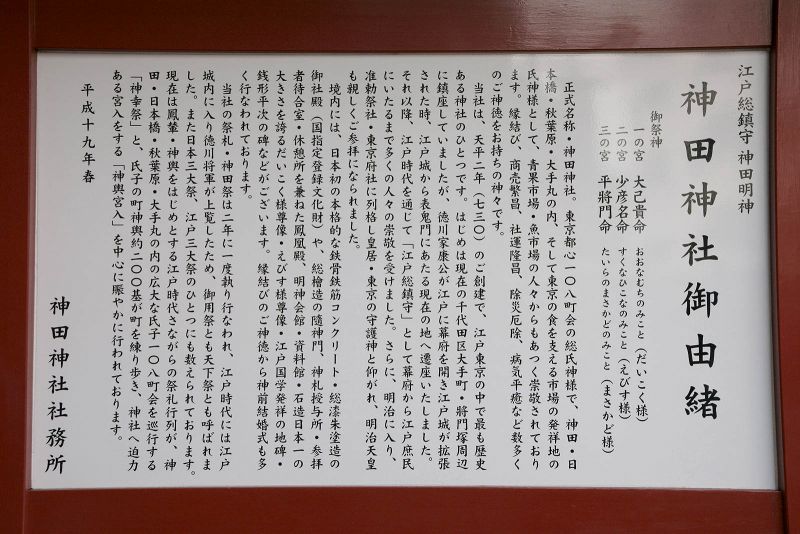 江戸総鎮守 神田明神
神田神社御由緒
御祭神
一の宮 大己貴命 おおなむちのみこと(だいこく様)
二の宮 少彦名命 すくなひこなのみこと(えびす様)
三の宮 平將門命 たいらのまさかどのみこと(まさかど様)
正式名称・神田神社。東京都心一〇八町会の総氏神様で、神田・日
本橋・秋葉原・大手丸の内、そして東京の食を支える市場の発祥地の
氏神様として、青果市場・魚市場の人々からもあつく崇敬されており
ます。縁結び、商売繁昌、社運隆昌、除災厄除、病気平癒など数多く
のご神徳をお持ちの神々です。
当社は、天平二年(七三〇)のご創建で、江戸東京の中で最も歴史
ある神社のひとつです。はじめは現在の千代田区大手町・將門塚周辺
に鎮座していましたが、徳川家康公が江戸に幕府を開き江戸城が拡張
された時、江戸城から表鬼門にあたる現在の地へ遷座いたしました。
それ以降、江戸時代を通じて「江戸総鎮守」として幕府から江戸庶民
にいたるまで多くの人々の崇敬を受けました。さらに、明治に入り、
准勅祭社・東京府社に列格し皇居・東京の守護神と仰がれ、明治天皇
も親しくご参拝になられました。
境内には、日本初の本格的な鉄骨鉄筋コンクリート・総漆朱塗造の
御社殿(国指定登録文化財)や、総檜造の隨神門、神札授与所・参拝
者待合室・休憩所を兼ねた鳳凰殿、明神会館・資料館・石造日本一の
大きさを誇るだいこく様尊像・えびす様尊像・江戸国学発祥の地碑・
銭形平次の碑などがございます。縁結びのご神徳から神前結婚式も多
く行なわれております。
当社の祭礼・神田祭は二年に一度執り行なわれ、江戸時代には江戸
城内に入り徳川将軍が上覧したため、御用祭とも天下祭とも呼ばれま
した。また日本三大祭、江戸三大祭のひとつにも数えられております。
現在は鳳輦・神輿をはじめとする江戸時代さながらの祭礼行列が、神
田・日本橋・秋葉原・大手丸の内の広大な氏子一〇八町会を巡行する
「神幸祭」と、氏子の町神輿約二〇〇基が町を練り歩き、神社へ迫力
ある宮入をする「神輿宮入」を中心に賑やかに行われております。
平成十九年春
神田神社社務所